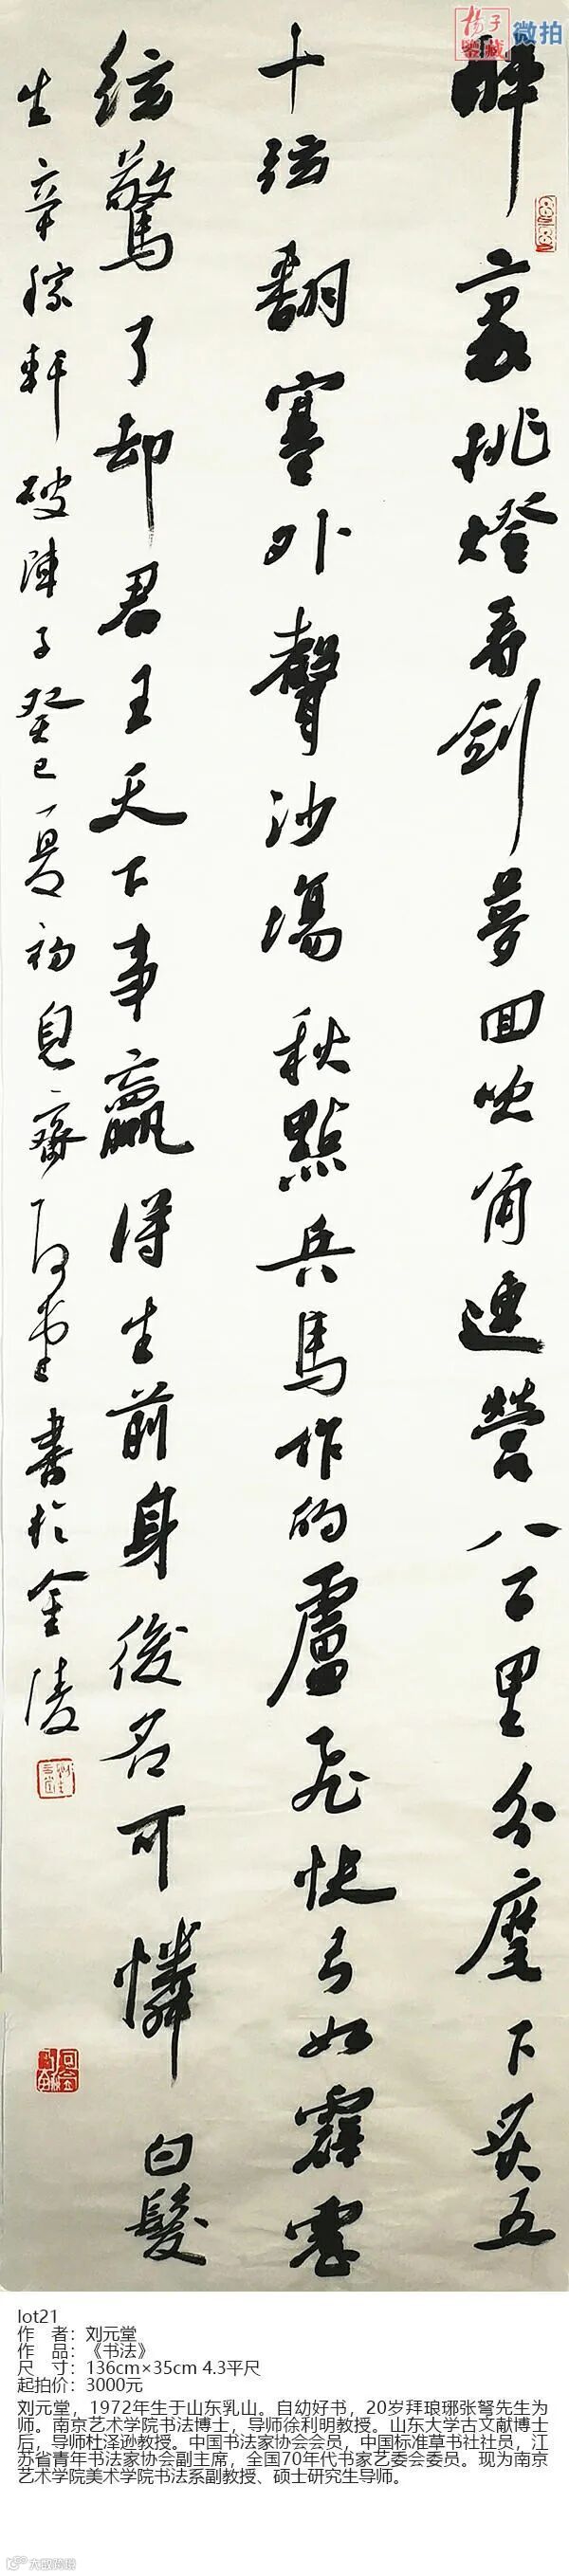 揚子
鑒藏
微拍
醉裏挑燈看剑夢回吹角連營八百里分麾下炙五
十弦翻塞外聲沙場秋點兵馬作的盧飛快弓如霹靂
弦驚了却君王天下事贏得生前身後名可憐白髮
生辛稼軒破陣子癸巳夏初見齋元堂書於金陵
lot21
作　者：刘元堂
作　品：《书法》
尺　寸：136cm×35cm 4.3平尺
起拍价：3000元
刘元堂，1972年生于山东乳山。自幼好书，20岁拜琅琊张弩先生为
师。南京艺术学院书法博士，导师徐利明教授。山东大学古文献博士
后，导师杜泽逊教授。中国书法家协会会员，中国标准草书社社员，江
苏省青年书法家协会副主席，全国70年代书家艺委会委员。现为南京
艺术学院美术学院书法系副教授、硕士研究生导师。
大数跨境